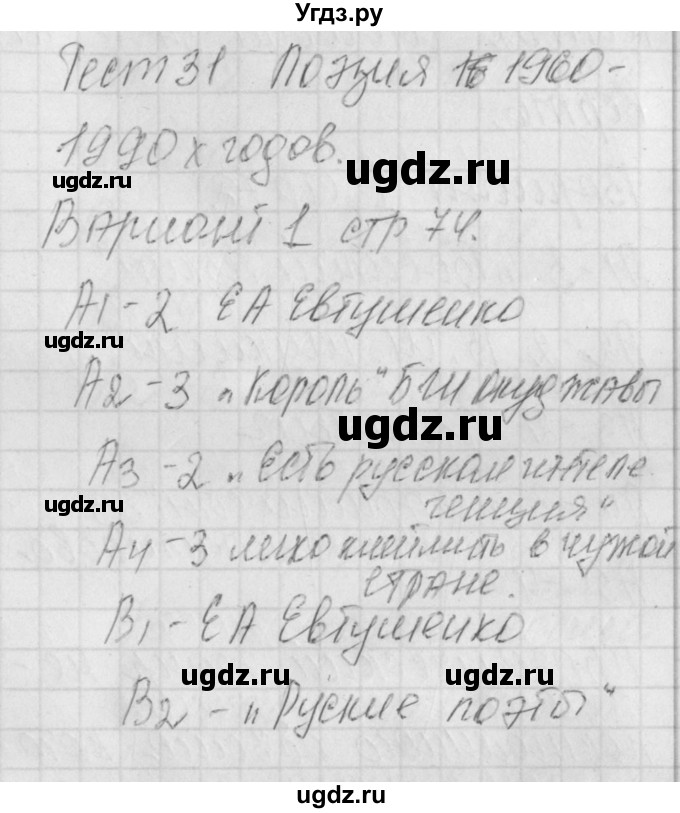 Угдз.ру
Тест 31 Поэзия 1960-
1990х годов.
ugdz.ru ugdz.ru
Вариант 1 стр 74.
А1-2 ЕА Евтушенко
ugdz.ru
А2-3 „Король“ БШ окуджавы
ugdz.ru
А3-2 „Есть русская интеле
ugdz.ru генция“
А4-3 легко клеймить в чужой
стране.
В1-ЕА Евтушенко
ugdz.ru ugdz.ru
В2-„Руские поэты“
ugdz.ru
ugdz.ru